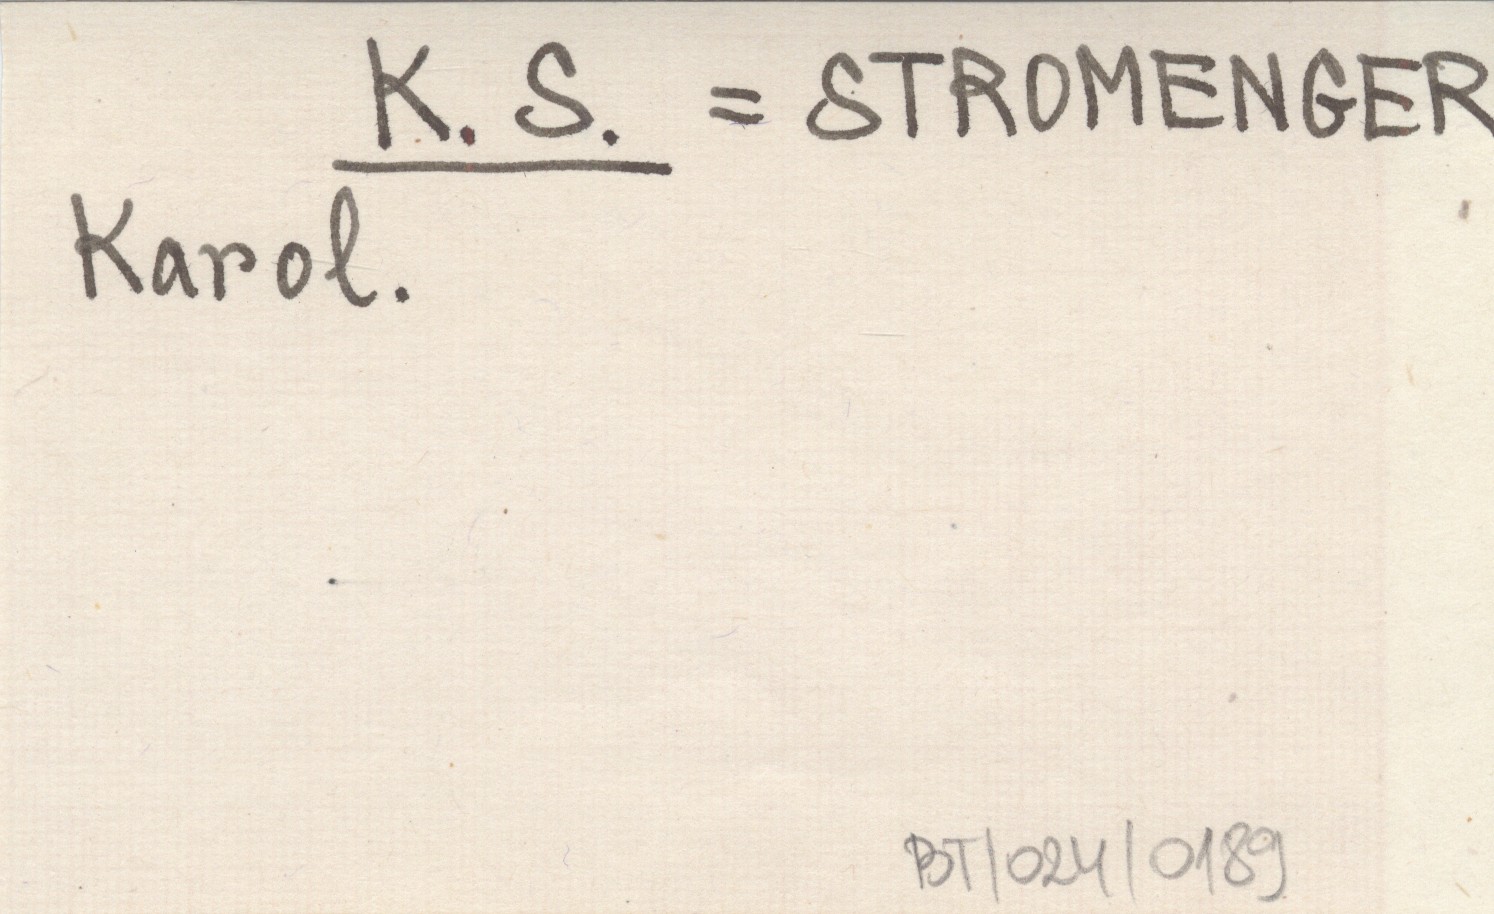 K. S. = STROMENGER
Karol.
BT/024/0189